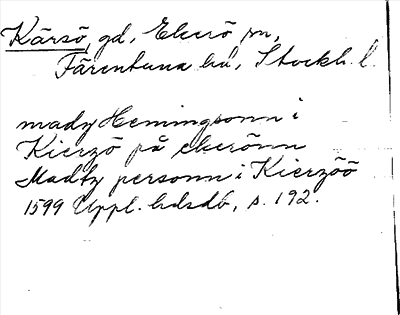 Kärsö, gd, Ekerö sn,
Färentuna hd, Stockh. l.
mady Hemingsonn i
Kierzö på ekerönn
Madtz personn i Kierzöö
1599 Uppl. hdsdb, s. 192.